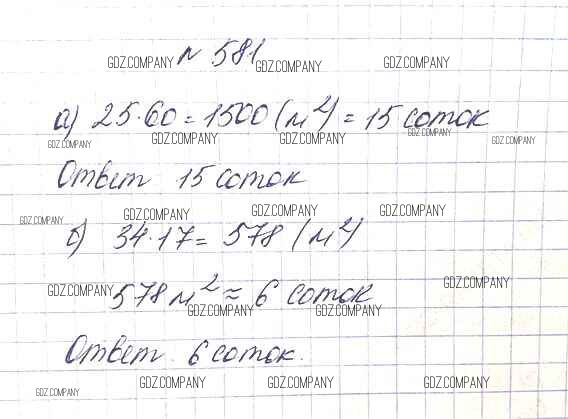 № 581
GDZ.COMPANY GDZ.COMPANY GDZ.COMPANY
а) 25·60 = 1500 (м²) = 15 соток
GDZ.COMPANY GDZ.COMPANY GDZ.COMPANY GDZ.COMPANY GDZ.COMPANY
Ответ 15 соток
GDZ.COMPANY GDZ.COMPANY GDZ.COMPANY GDZ.COMPANY
б) 34·17 = 578 (м²)
GDZ.COMPANY
GDZ.COMPANY 578 м² ≈ 6 соток
GDZ.COMPANY GDZ.COMPANY
Ответ 6 соток.
GDZ.COMPANY GDZ.COMPANY GDZ.COMPANY
GDZ.COMPANY